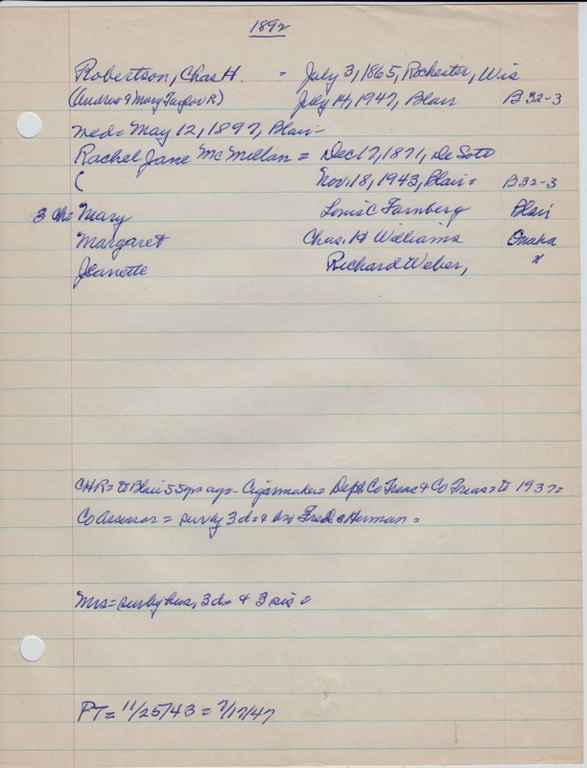 1892
Robertson, Chas H. = July 3, 1865, Rochester, Wis
(Andrew & Mary Taylor R) July 14, 1947, Blair B 32-3
med = May 12, 1897, Blair =
Rachel Jane McMillan = Dec 17, 1871, De Soto
( Nov. 18, 1943, Blair = B 32-3
3 ch = Mary Louis C Farnberg Blair
Margaret Chas. H Williams Omaha
Jeanette Richard Weber, x
CHR = to Blair 55 yrs ago - Cigarmaker = Dept Co Treas & Co Treas = to 1937 =
Co Assessor = surv by 3 d = & bro Fred & Herman =
Mrs = surv by hus, 3 d = & 3 sis =
PT = 11/25/43 = 7/17/47